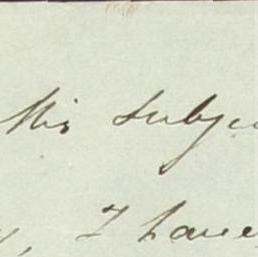 this subjec
, I have